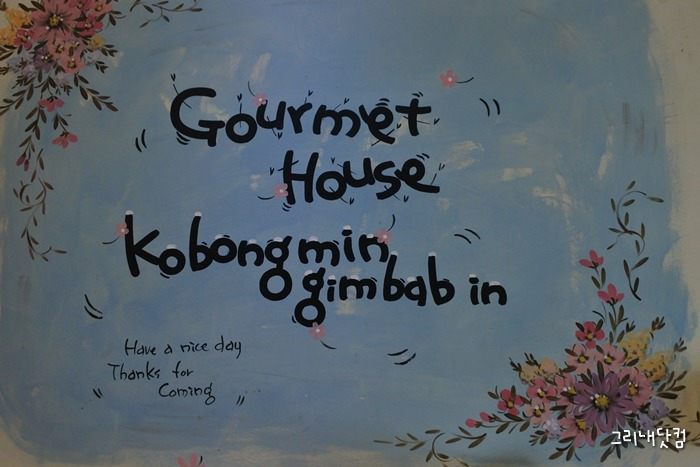 Gourmet
House
Kobongmin
gimbab in
Have a nice day
Thanks for
Coming
그리내닷컴